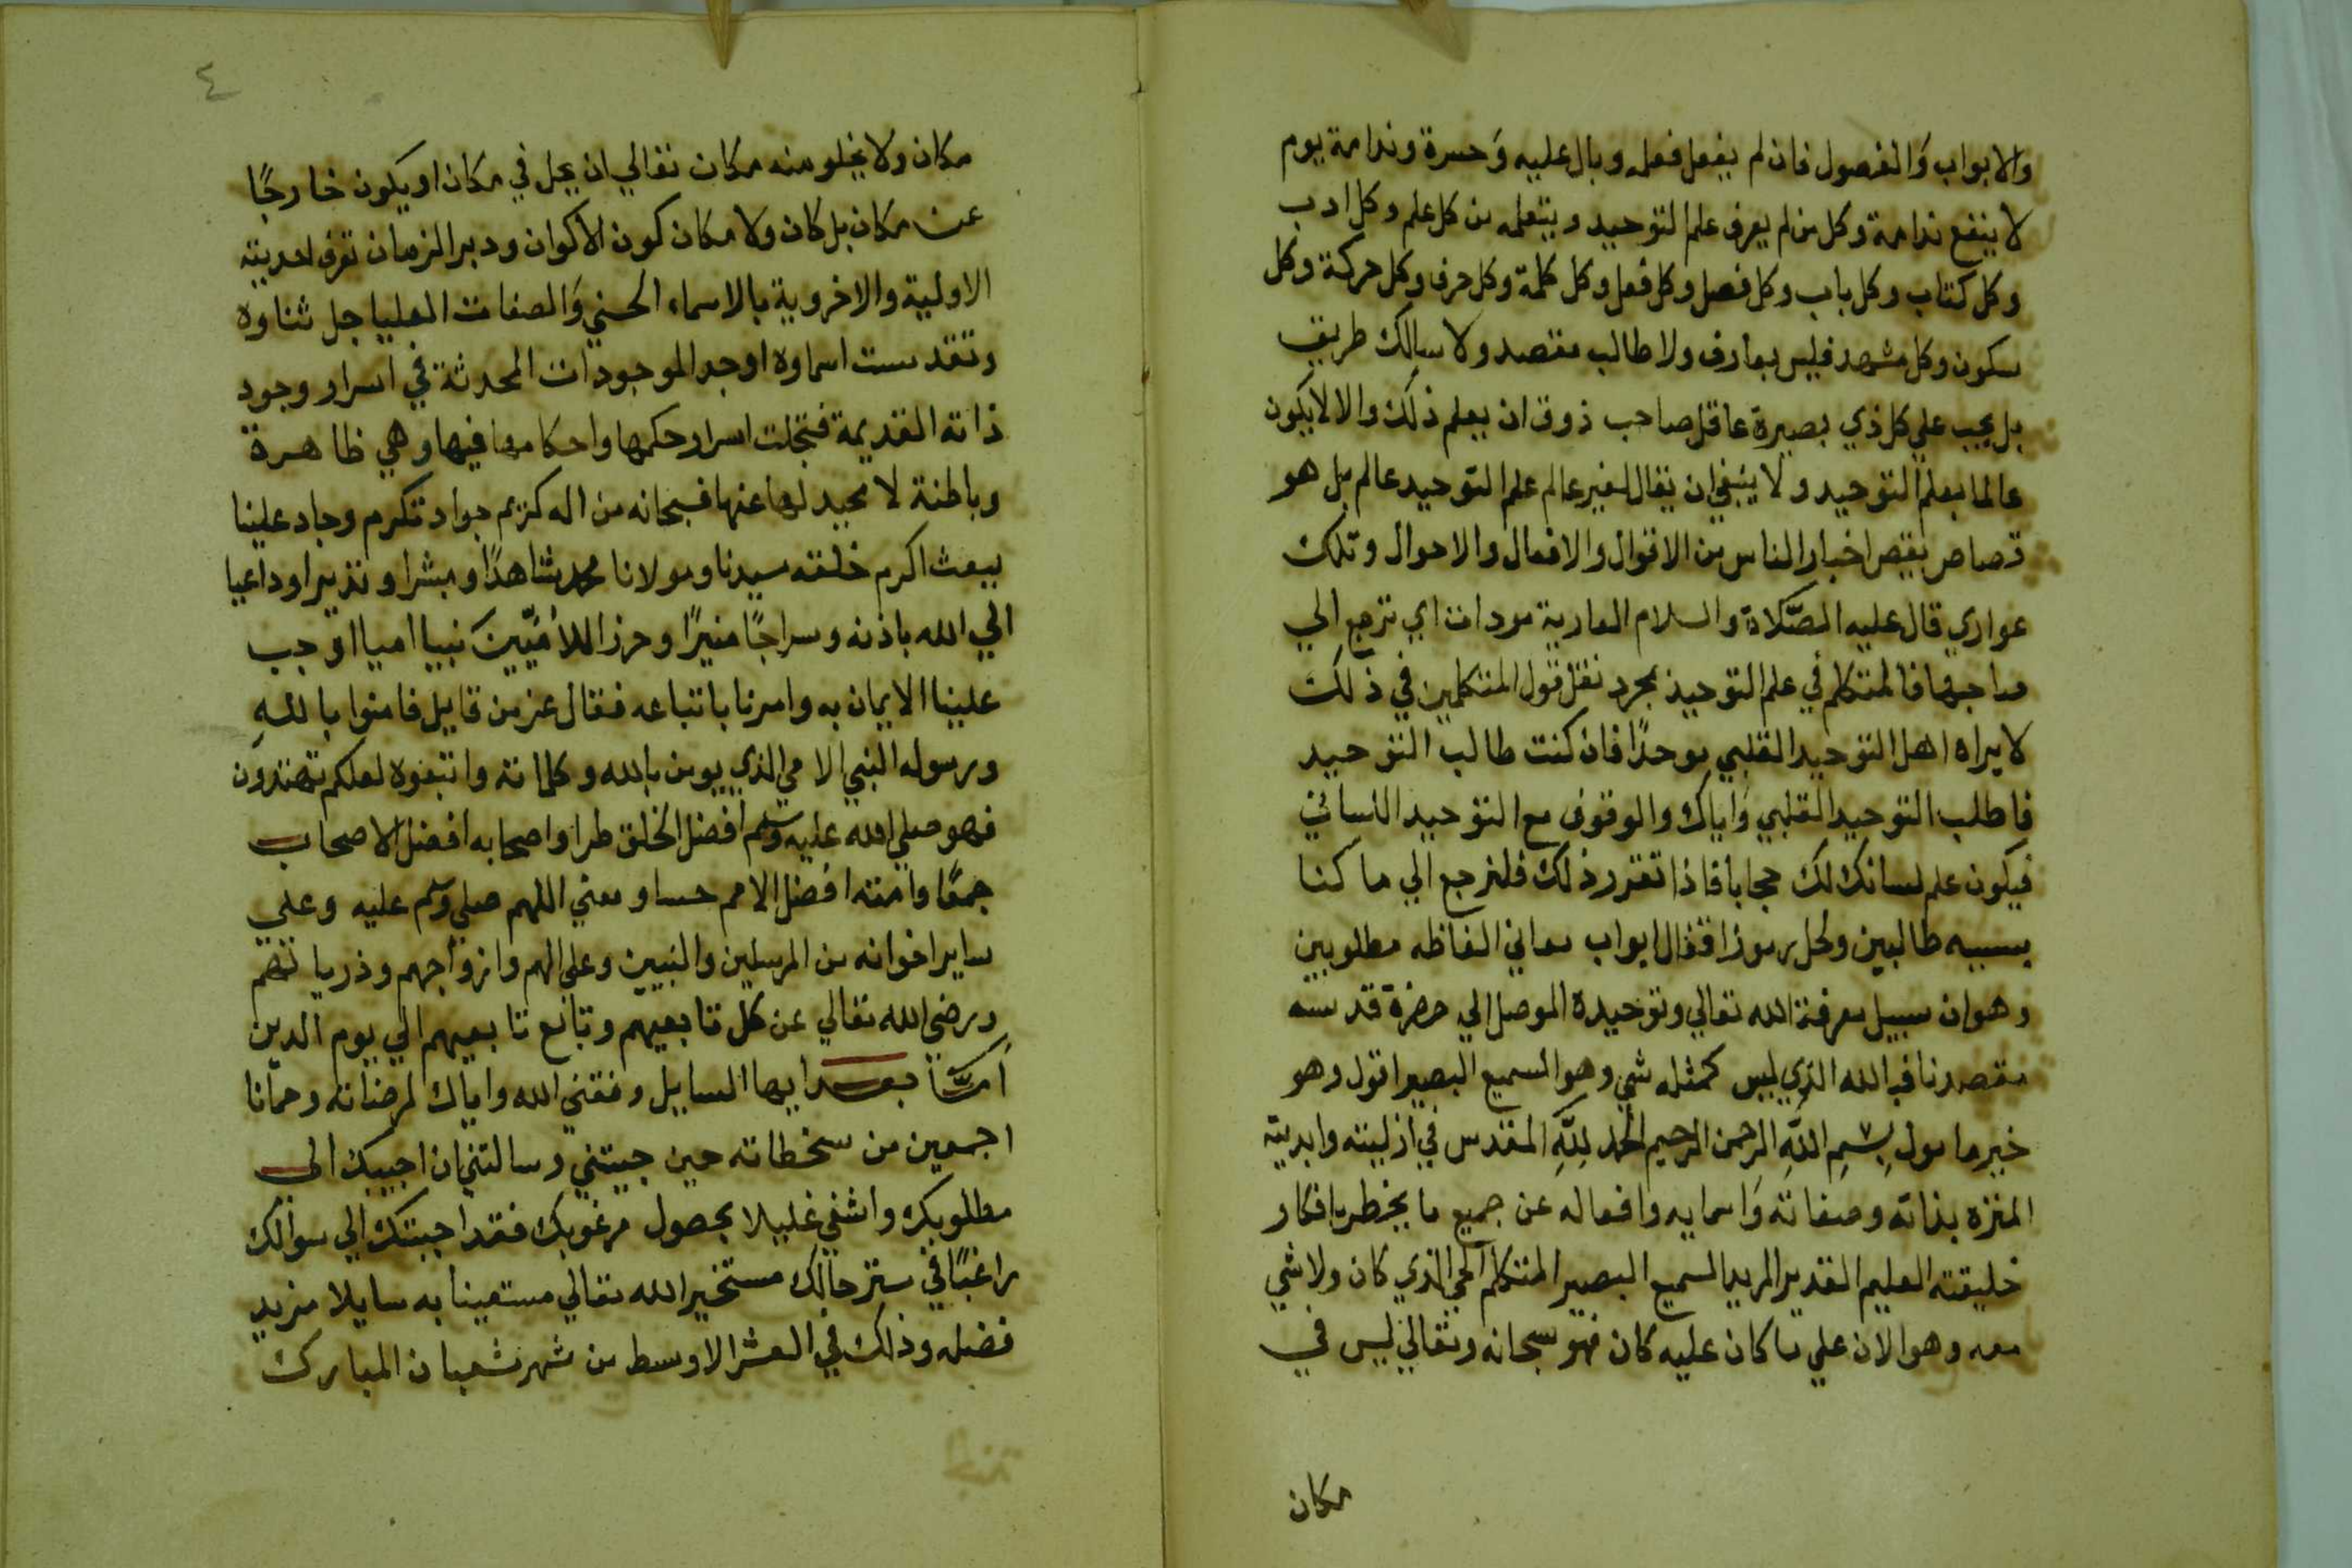 والابواب وَالفصول فان لم يفعل فعله وبال عليه وَحسرة وندامة يوم
لا ينفع ندامة وكل من لم يعرف علم التوحيد ويتعلمه من كل علم وكل ادب
وكل كتاب وكل باب وكل فصل وكل فعل وكل كلمة وكل حرف وكل حركة وكل
سكون وكل مشهد فليس بعارف ولا طالب مقصد ولا سالك طريق
بل يجب علي كل ذي بصيرة عاقل صاحب ذوق ان يعلم ذلك والا لايكون
عالما بعلم التوحيد ولا ينبغي ان يقال لغير عالم علم التوحيد عالم بل هو
قصاص يقص اخبار الناس من الاقوال والافعال والاحوال وتلك
عواري قال عليه الصَّلاة والسلام العارية مودات اي ترجع الي
صاحبها فالمتكلم في علم التوحيد بمجرد نقل قول المتكلمين في ذلك
لا يراه اهل التوحيد القلبي موحدًا فان كنت طالب التوحيد
فاطلب التوحيد القلبي وَاياك والوقوف مع التوحيد اللساني
فيكون علم لسانك لك حجابا فاذا تقرر ذلك فلنرجع الي ما كنا
بسببه طالبين ولحل رموز اقفال ابواب معاني الفاظه مطلوبين
وهو ان سبيل معرفة الله تعالي وتوحيده الموصل الي حضرة قدسه
مقصدنا فبالله الذي ليس كمثله شي وهو السميع البصير اقول وهو
خير مامول بِسْمِ اللَّهِ الرحمن الرحيم الحمد لِلَّهِ المقدس في ازليته وابديته
المنزه بذاته وصفاته وَاسمايه وافعاله عن جميع ما يخطر بافكار
خليقته العليم القدير المريد السميع البصير المتكلم الحي الذي كان ولا شي
معه وهو الان علي ما كان عليه كان فهو سبحانه وتعالي ليس في
مكان
٤
مكان ولا يخلو منه مكان تعالي ان يحل في مكان او يكون خارجًا
عن مكان بل كان ولا مكان كون الاكوان ودبر الزمان تعرف احديته
الاولية والاخروية بالاسماء الحسني وَالصفات العليا جل ثناوه
وتقدست اسماوه اوجد الموجودات المحدثة في اسرار وجود
ذاته القديمة فتجلت اسرار حكمها واحكامها فيها وهي ظاهرة
وباطنة لا محيد لها عنها فسبحانه من اله كريم جواد تكرم وجاد علينا
ببعث اكرم خلقه سيدنا ومولانا محمد شاهدًا ومبشرا ونذيرا وداعيا
الي الله باذنه وسراجًا منيرًا وحرزا للأمّيّينَ نبيا اميا اوجب
علينا الايمان به وامرنا باتباعه فقال عز من قايل فامنوا باللهِ
ورسوله النبي الامي الذي يومن بالله وكلماته واتبعوه لعلكم تهتدون
فهو صلي الله عليه وسلم افضل الخلق طرا واصحابه افضل الاصحاب
جمعًا وامته افضل الامم حسا ومعني اللهم صلي وسلم عليه وعلي
ساير اخوانه من المرسلين والنبيين وعلي الهم وازواجهم وذرياتهم
ورضي الله تعالي عن كل تابعيهم وتابع تابعيهم الي يوم الدين
اَمَّا بعد ايها السايل وفقني الله واياك لمرضاته وحمانا
اجمعين من سخطاته حين جيتني وسالتني ان اجيبك الي
مطلوبك واشفي غليلا بحصول مرغوبك فقد اجبتك الي سوالك
راغبًا في ستر حالك مستخيرا لله تعالي مستعينا به سايلا مزيد
فضله وذلك في العشر الاوسط من شهر شعبان المبارك